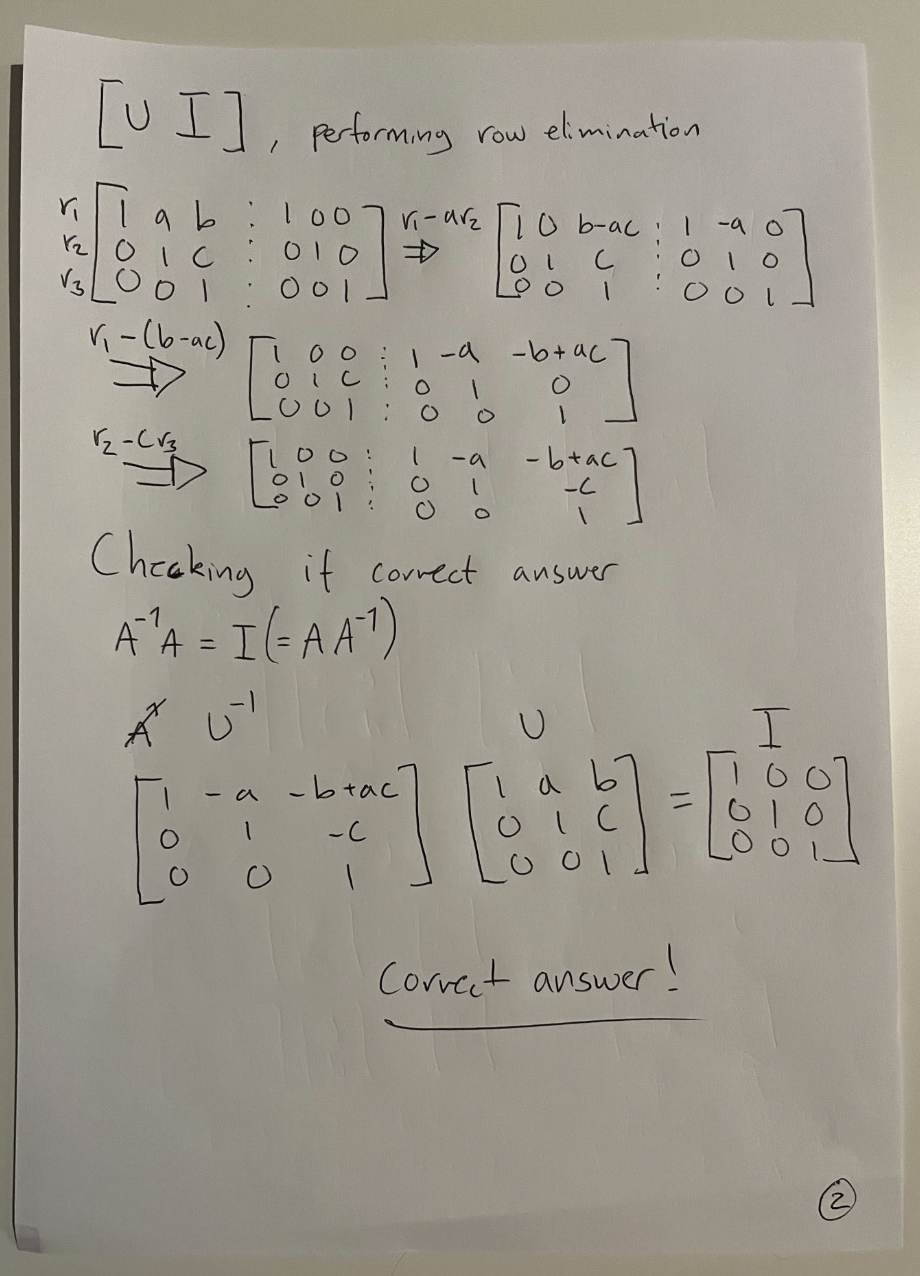 [U I], performing row elimination
r₁ [1 a b ⋮ 1 0 0] r₁-ar₂ [1 0 b-ac ⋮ 1 -a 0]
r₂ [0 1 c ⋮ 0 1 0] ⇒ [0 1 c ⋮ 0 1 0]
r₃ [0 0 1 ⋮ 0 0 1] [0 0 1 ⋮ 0 0 1]
r₁-(b-ac) [1 0 0 ⋮ 1 -a -b+ac]
⇒ [0 1 c ⋮ 0 1 0]
[0 0 1 ⋮ 0 0 1]
r₂-cr₃ [1 0 0 ⋮ 1 -a -b+ac]
⇒ [0 1 0 ⋮ 0 1 -c]
[0 0 1 ⋮ 0 0 1]
Checking if correct answer
A⁻¹A = I(=AA⁻¹)
U⁻¹ U I
[1 -a -b+ac] [1 a b] = [1 0 0]
[0 1 -c] [0 1 c] [0 1 0]
[0 0 1] [0 0 1] [0 0 1]
Correct answer!
2